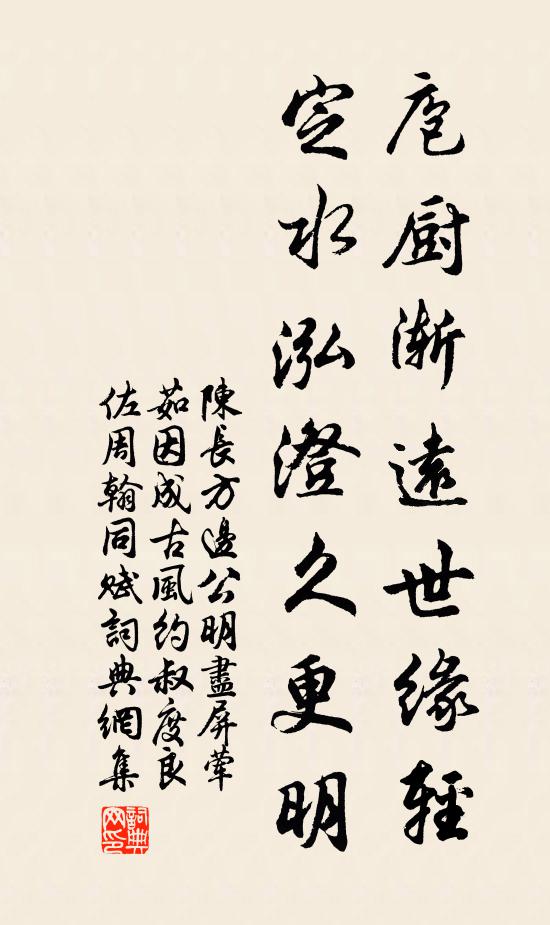 庖厨漸遠世緣輕
定水泓澄久更明
陳長方邊公明盡屏葷
茹因成古風約叔度良
佐周翰同賦詞典網集
詞典網印